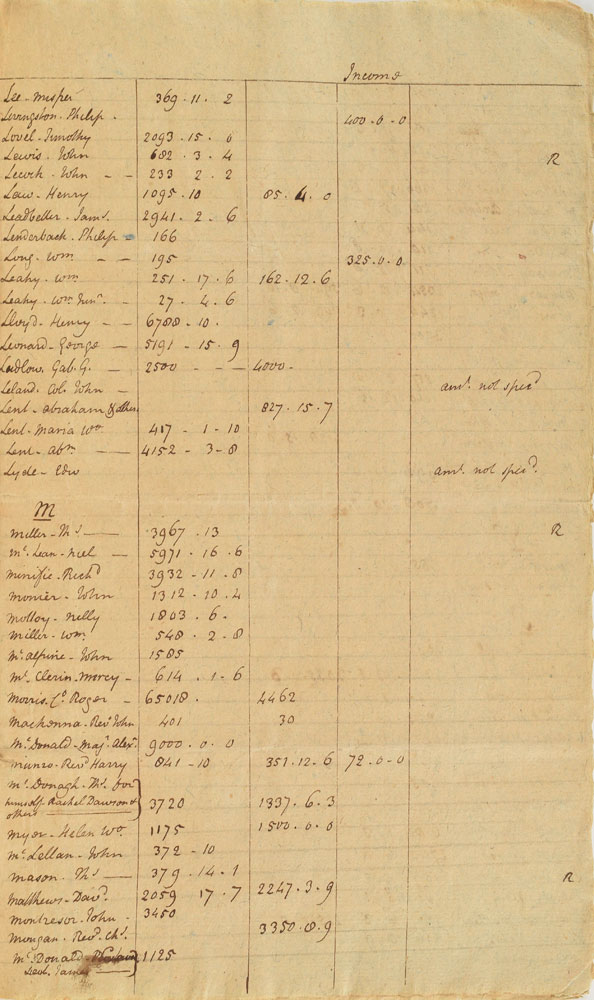 Income
Lee - Misper 369 . 11 . 2
Livingston . Philip . 400 . 0 . 0
Lovel . Timothy 2093 . 15 . 0
Lewis . John 682 . 3 . 4 R
John - - 233 2 . 2
Law . Henry 1095 . 10 85 . 4 . 0
Leadbetter . Jams. 2941 . 2 . 6
Lenderback . Philip - 166
Long . Wm - - 195 325 . 0 . 0
Leahy . Wm 251 . 17 . 6 162 . 12 . 6
Leahy . Wm Junr . - 27 . 4 . 6
Lloyd . Henry - - 6788 - 10 .
Leonard - George - 5191 - 15 . 9
Ludlow . Gab. G. - 2500 - - - 4000 -
Leland . Col. John - amt. not specd
Lent - Abraham & others 827 . 15 . 7
Lent . Maria Wo. 417 - 1 - 10
Lent . Abm. - 4152 - 3 - 8
Lyde - Edw amt. not specd.
M
Miller - Ths - 3967 . 13 R
Mc. Lean - Niel - 5971 . 16 . 6
Minific . Richd 3932 - 11 . 8
Monier - John 1312 - 10 . 4
Molloy - Nelly 1803 . 6 .
Miller - Wm. 548 . 2 - 8
Mc. Alpine - John 1585
Mc. Clerin - Mercy - 614 . 1 - 6
Morris . Co Roger - 65018 . 4462
Mackenna . Revd John 401 30
Mc. Donald - Maj. Alexr. 9000 . 0 . 0
Munro . Revd Harry 841 - 10 351 . 12 . 6 72 . 0 - 0
Mc. Donagh . Ths. for
himself Rachel Dawson & 3720 1337 . 6 . 3
others
Myer - Helen Wo. 1175 1500 . 0 . 0
Mc. Lellan - John 372 - 10
Mason . Ths - 379 . 14 . 1 R
Matthews - Davd. 2059 17 . 7 2247 . 3 . 9
Montresor . John . 3450
Mungan . Revd. Chs. 3350 . 8 . 9
Mc. Donald - 1125
Lieut. James